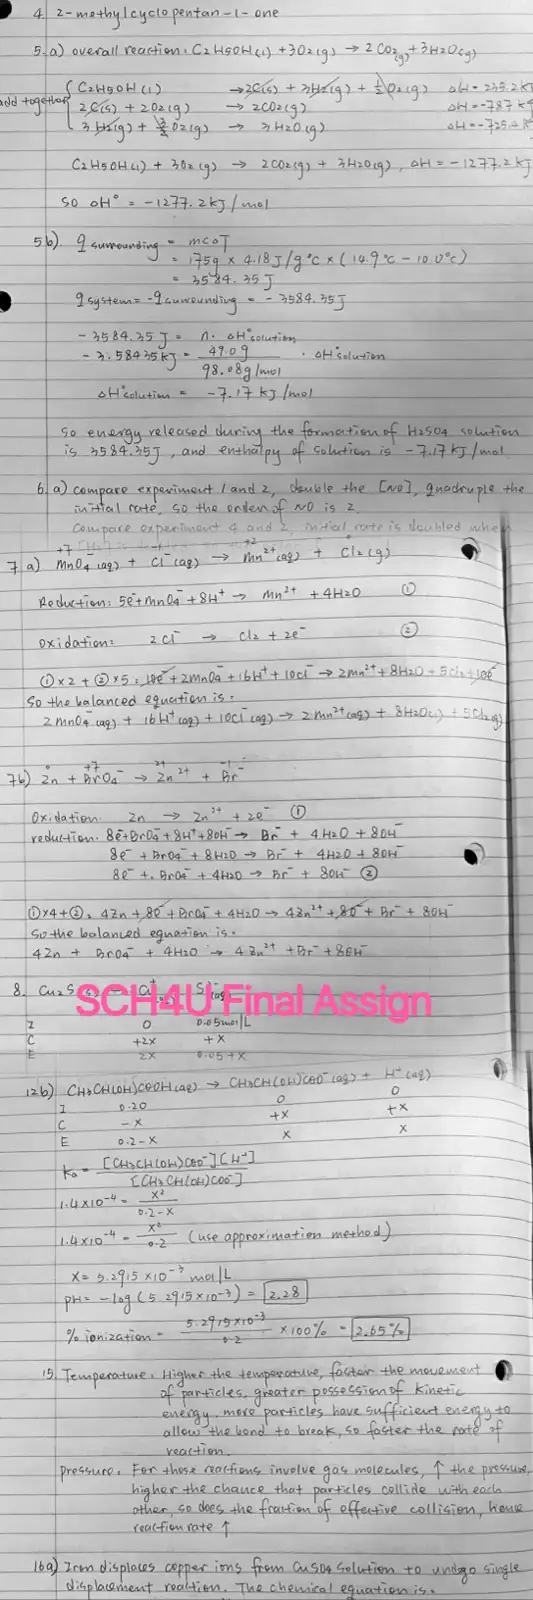 4. 2-methylcyclopentan-1-one
5. a) overall reaction: C2H5OH(l) + 3O2(g) → 2CO2(g) + 3H2O(g)
add together
C2H5OH(l) → 2C(s) + 3H2(g) + ½O2(g) ΔH = 235.2k
2C(s) + 2O2(g) → 2CO2(g) ΔH = -787 k
3H2(g) + 3/2O2(g) → 3H2O(g) ΔH = -725.4k
C2H5OH(l) + 3O2(g) → 2CO2(g) + 3H2O(g), ΔH = -1277.2kJ
so ΔH° = -1277.2kJ/mol
5b). q surrounding = mcΔT
= 175g × 4.18J/g°C × (14.9°C - 10.0°C)
= 3584.35J
q system = -q surrounding = -3584.35J
-3584.35J = n. ΔH°solution
-3.58435kJ = 49.0g / 98.08g/mol . ΔH°solution
ΔH°solution = -7.17 kJ/mol
so energy released during the formation of H2SO4 solution
is 3584.35J, and enthalpy of solution is -7.17kJ/mol
6. a) compare experiment 1 and 2, double the [NO], quadruple the
initial rate, so the order of NO is 2.
Compare experiment 4 and 2, initial rate is doubled when
+7 +2
7 a) MnO4-(aq) + Cl-(aq) → Mn2+(aq) + Cl2(g)
Reduction: 5e- + MnO4- + 8H+ → Mn2+ + 4H2O ①
Oxidation: 2Cl- → Cl2 + 2e- ②
①×2 + ②×5: 10e- + 2MnO4- + 16H+ + 10Cl- → 2Mn2+ + 8H2O + 5Cl2 + 10e-
So the balanced equation is:
2MnO4-(aq) + 16H+(aq) + 10Cl-(aq) → 2Mn2+(aq) + 8H2O(l) + 5Cl2(g)
0 +7 2+ -1
7b) Zn + BrO4- → Zn2+ + Br-
Oxidation: Zn → Zn2+ + 2e- ①
reduction: 8e- + BrO4- + 8H+ + 8OH- → Br- + 4H2O + 8OH-
8e- + BrO4- + 8H2O → Br- + 4H2O + 8OH-
8e- + BrO4- + 4H2O → Br- + 8OH- ②
①×4+②: 4Zn + 8e- + BrO4- + 4H2O → 4Zn2+ + 8e- + Br- + 8OH-
So the balanced equation is:
4Zn + BrO4- + 4H2O → 4Zn2+ + Br- + 8OH-
8. Cu2S(s)
SCH4U Final Assign
I 0 0.05mol/L
C +2x +x
E 2x 0.05+x
12b) CH3CH(OH)COOH(aq) → CH3CH(OH)COO-(aq) + H+(aq)
I 0.20 0 0
C -x +x +x
E 0.2-x x x
Ka = [CH3CH(OH)COO-][H+] / [CH3CH(OH)COO-]
1.4×10-4 = x² / 0.2-x
1.4×10-4 = x² / 0.2 (use approximation method)
x = 5.2915×10-3 mol/L
pH = -log(5.2915×10-3) = 2.28
% ionization = 5.2915×10-3 / 0.2 × 100% = 2.65%
15. Temperature: Higher the temperature, faster the movement
of particles, greater possession of kinetic
energy. more particles have sufficient energy to
allow the bond to break, so faster the rate of
reaction.
pressure: For those reactions involve gas molecules, ↑ the pressure,
higher the chance that particles collide with each
other, so does the fraction of effective collision, hence
reaction rate ↑
16a) Iron displaces copper ions from CuSO4 solution to undgo single
displacement reaction. The chemical equation is: